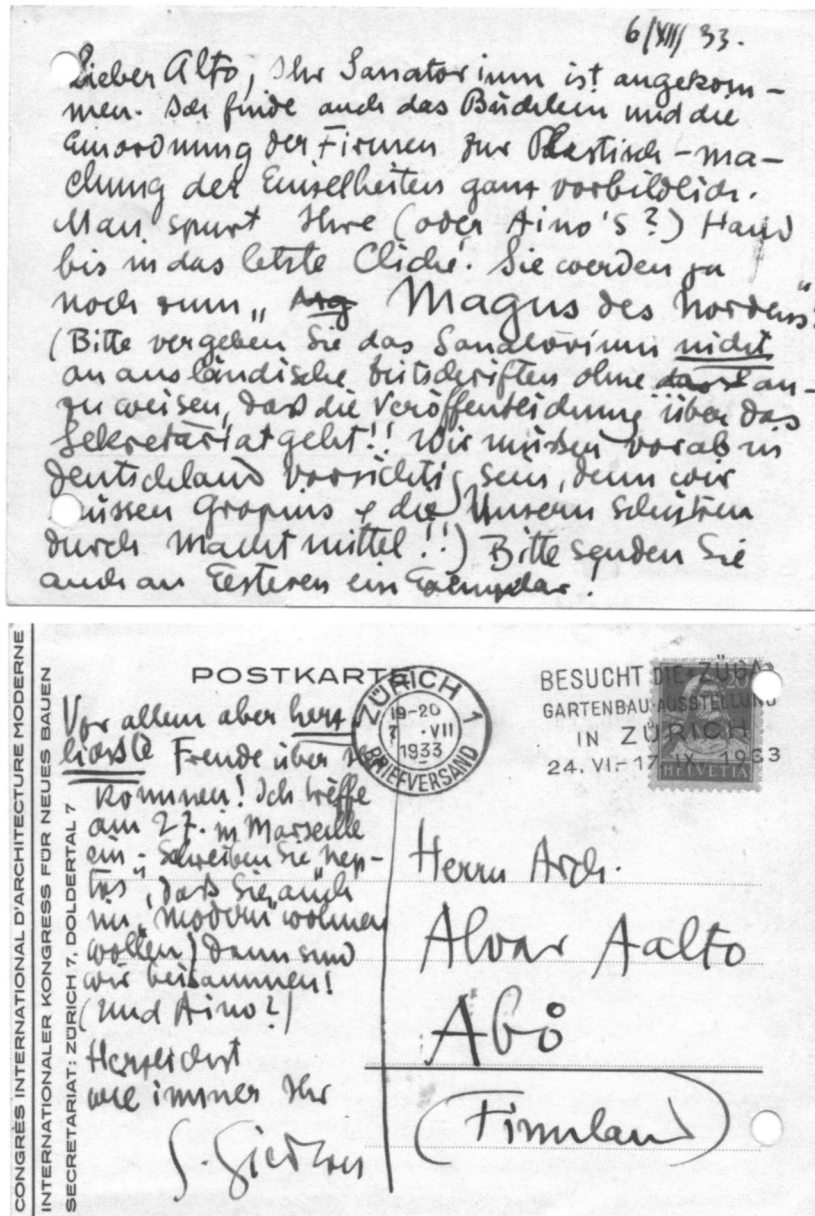 6/VII/ 33.
Lieber Alto, Ihr Sanatorium ist angekom-
men. Ich finde auch das Büchlein und die
Einordnung der Firmen zur Plastisch-ma-
chung der Einzelheiten ganz vorbildlich.
Man spürt Ihre (oder Aino's?) Hand
bis in das letzte Cliché. Sie werden ja
noch zum „ Magus des Nordens"!
(Bitte vergeben Sie das Sanatorium nicht
an ausländische Zeitschriften ohne an-
zuweisen, daß die Veröffentlichung über das
Sekretariat geht!! Wir müssen vorab in
Deutschland vorsichtig sein, denn wir
müssen Gropius & die Unsern schützen
durch Machtmittel!!) Bitte senden Sie
auch an Eesteren ein Exemplar!
CONGRÈS INTERNATIONAL D'ARCHITECTURE MODERNE
INTERNATIONALER KONGRESS FÜR NEUES BAUEN
SECRETARIAT: ZÜRICH 7, DOLDERTAL 7
POSTKARTE
ZÜRICH 1
19-20
7 ·VII
1933
BRIEFVERSAND
BESUCHT DIE ZÜGA
GARTENBAU-AUSSTELLUNG
IN ZÜRICH
24. VI.-17. IX. 1933
HELVETIA
Vor allem aber herz-
lichste Freude über
kommen! Ich treffe
am 27. in Marseille
ein - Schreiben Sie „Nep-
tos", daß Sie auch
im „Modern" wohnen
wollen, dann sind
wir beisammen!
(Und Aino?)
Herzlichst
wie immer Ihr
S. Giedion
Herrn Arch.
Alvar Aalto
Åbo
(Finnland)